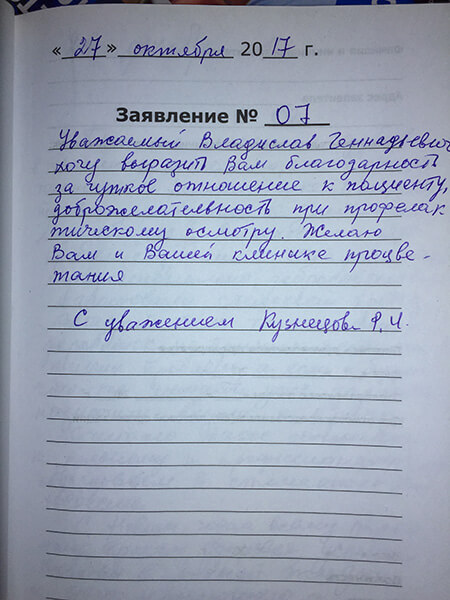 « 27 » октября 2017 г.
Заявление № 07
Уважаемый Владислав Геннадьевич
хочу выразить Вам благодарность
за чуткое отношение к пациенту,
доброжелательность при профелак
тическому осмотру. Желаю
Вам и Вашей клинике процве-
тания
С уважением Кузнецов